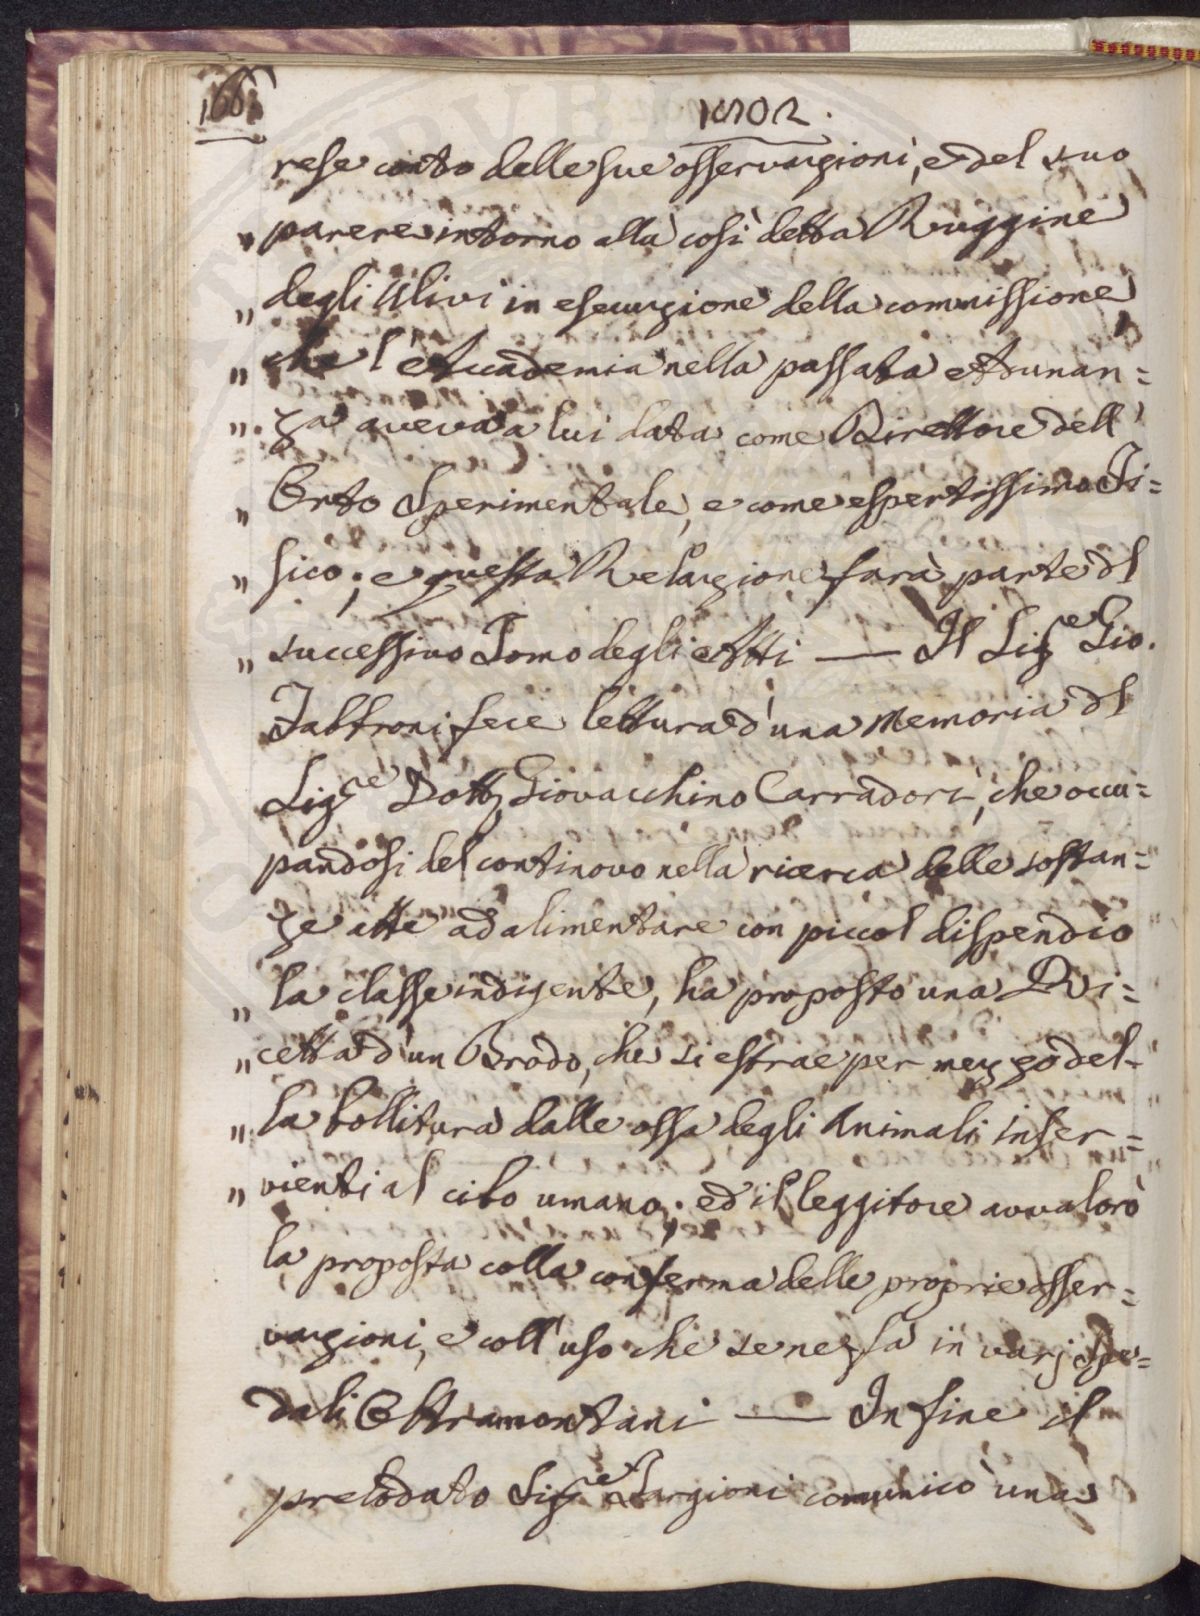 166.
1802.
rese conto delle sue osservazioni, e del suo
„ parere intorno alla così detta Ruggine
„ degli Ulivi in esecuzione della commissione
„ che l'Accademia nella passata Adunan=
„ za aveva a lui data come Direttore dell'
„ Orto Sperimentale, e come espertissimo Fi=
„ sico; e questa Relazione farà parte dl
„ successivo Tomo degli Atti — Il Sigre Gio.
Fabbroni fece lettura d'una Memoria dl
Sigre Dottr Giovacchino Carradori, che occu=
pandosi del continovo nella ricerca delle sostan=
ze atte ad alimentare con piccol dispendio
„ la classe indigente, ha proposto una Ri=
„ cetta d'un Brodo, che si estrae per mezzo del=
„ la bollitura dalle ossa degli Animali inser=
„ vienti al cibo umano; ed il leggitore avvalorò
la proposta colla conferma delle proprie osser=
vazioni, e coll'uso che se ne fà in varj Spe=
dali Oltramontani — In fine il
prelodato Sigre Targioni comunicò una